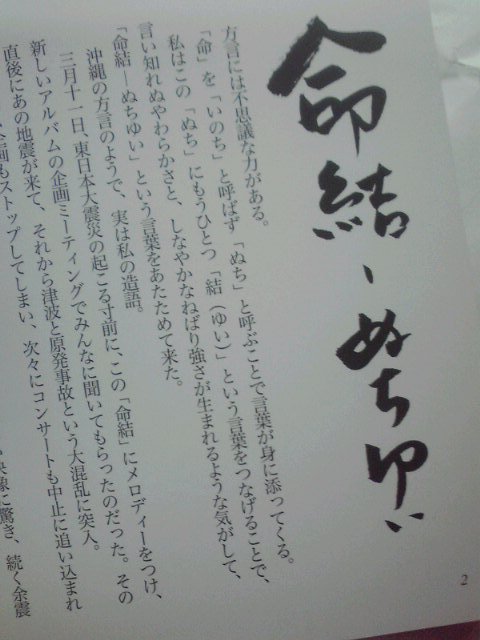 命結-ぬちゆい
方言には不思議な力がある。
「命」を「いのち」と呼ばず「ぬち」と呼ぶことで言葉が身に添ってくる。
私はこの「ぬち」にもうひとつ「結（ゆい）」という言葉をつなげることで、
言い知れぬやわらかさと、しなやかなねばり強さが生まれるような気がして、
「命結―ぬちゆい」という言葉をあたためて来た。
沖縄の方言のようで、実は私の造語。
三月十一日、東日本大震災の起こる寸前に、この「命結」にメロディーをつけ、
新しいアルバムの企画ミーティングでみんなに聞いてもらったのだった。その
直後にあの地震が来て、それから津波と原発事故という大混乱に突入。
企画もストップしてしまい、次々にコンサートも中止に追い込まれ
映像に驚き、続く余震
2